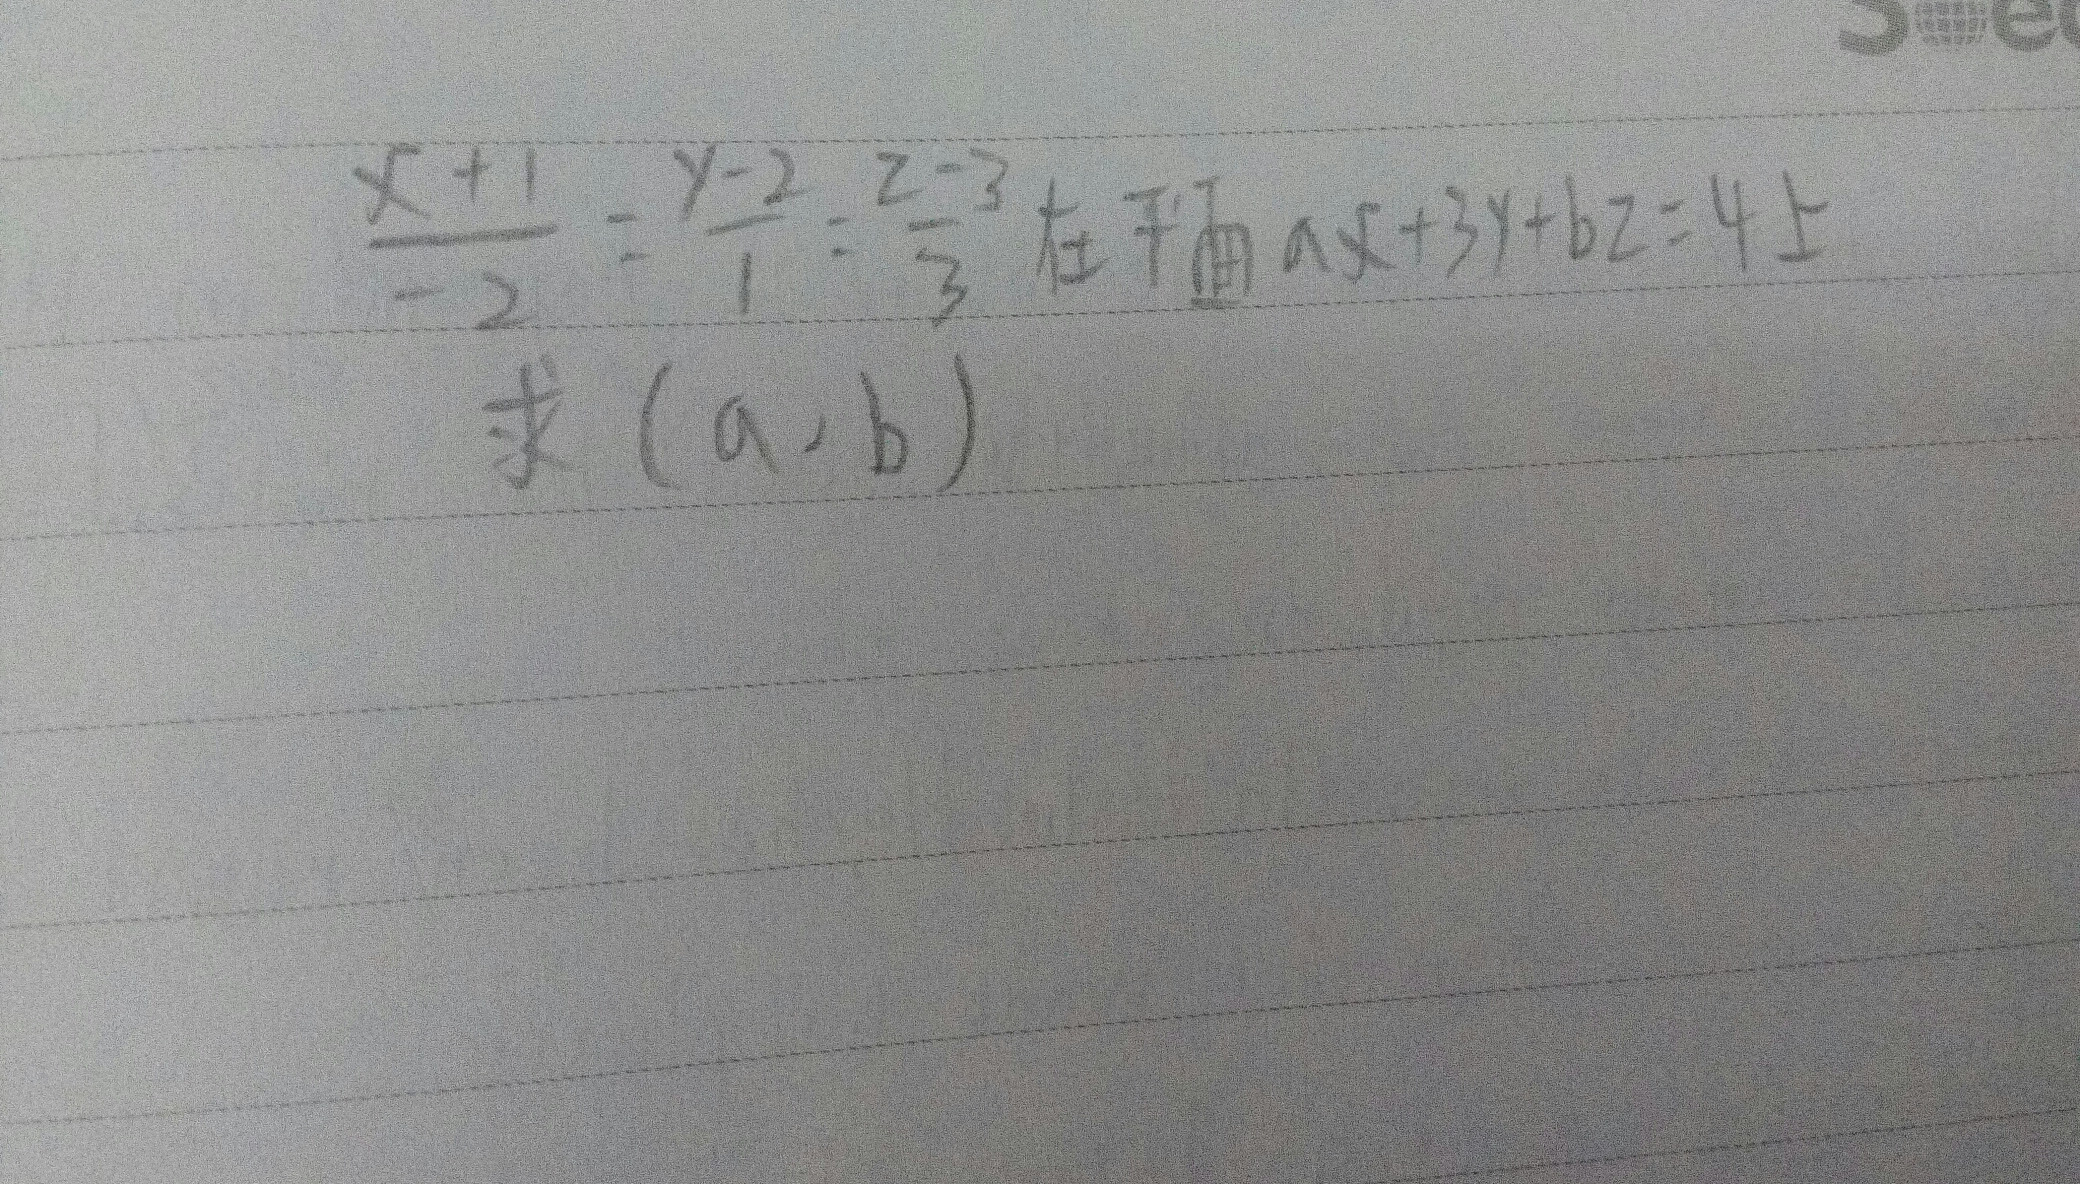 x+1/-2 = y-2/1 = z-3/3 在平面ax+3y+bz=4上
求(a,b)